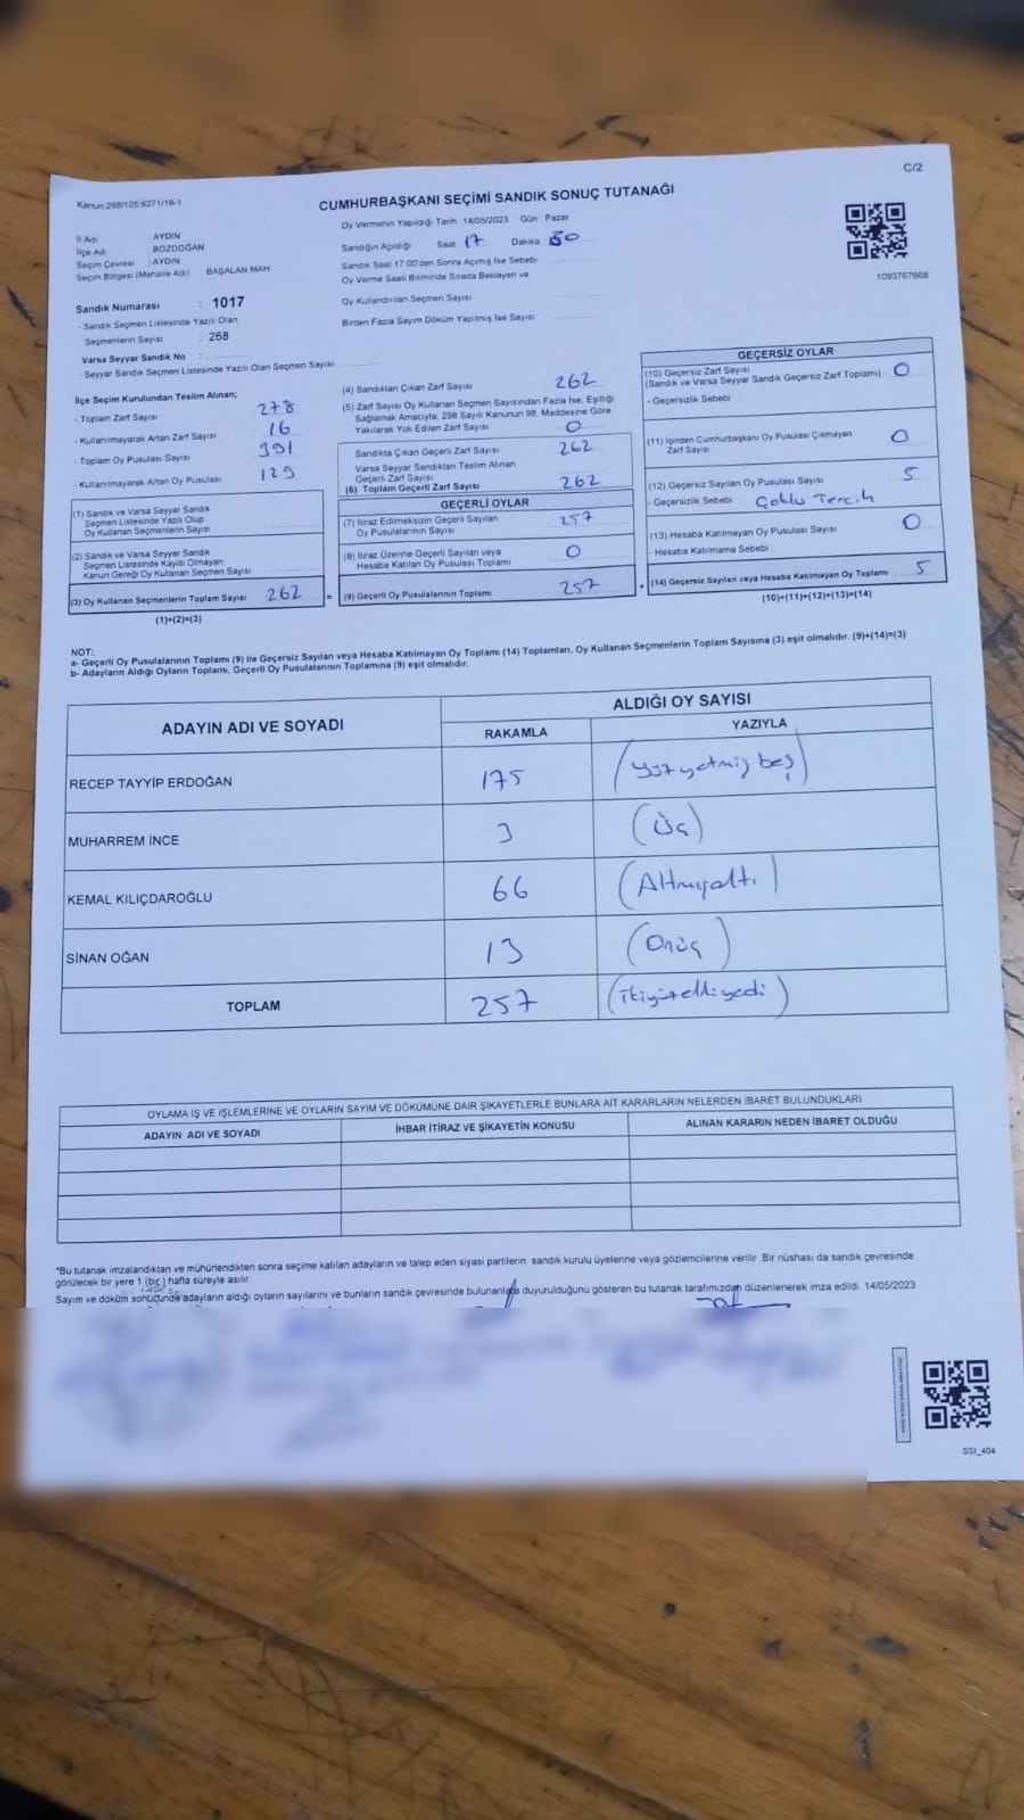 C/2
Kanun 298/105 6271/18-1
CUMHURBAŞKANI SEÇİMİ SANDIK SONUÇ TUTANAĞI
Oy Vermenin Yapıldığı Tarih :14/05/2023 Gün : Pazar
İl Adı : AYDIN
İlçe Adı : BOZDOĞAN
Seçim Çevresi : AYDIN
Seçim Bölgesi (Mahalle Adı) : BAŞALAN MAH.
Sandığın Açıldığı Saat 17 Dakika 50
Sandık Saat 17:00'den Sonra Açılmış İse Sebebi
Oy Verme Saati Bitiminde Sırada Bekleyen ve
Oy Kullandırılan Seçmen Sayısı
Birden Fazla Sayım Döküm Yapılmış İse Sayısı
1093767668
Sandık Numarası : 1017
- Sandık Seçmen Listesinde Yazılı Olan
Seçmenlerin Sayısı : 268
Varsa Seyyar Sandık No :
- Seyyar Sandık Seçmen Listesinde Yazılı Olan Seçmen Sayısı
İlçe Seçim Kurulundan Teslim Alınan;
- Toplam Zarf Sayısı 278
- Kullanılmayarak Artan Zarf Sayısı 16
- Toplam Oy Pusulası Sayısı 391
- Kullanılmayarak Artan Oy Pusulası 129
(1) Sandık ve Varsa Seyyar Sandık
Seçmen Listesinde Yazılı Olup
Oy Kullanan Seçmenlerin Sayısı
(2) Sandık ve Varsa Seyyar Sandık
Seçmen Listesinde Kaydı Olmayan
Kanun Gereği Oy Kullanan Seçmen Sayısı
(3) Oy Kullanan Seçmenlerin Toplam Sayısı 262 =
(1)+(2)=(3)
(4) Sandıktan Çıkan Zarf Sayısı 262
(5) Zarf Sayısı Oy Kullanan Seçmen Sayısından Fazla İse, Eşitliği
Sağlamak Amacıyla, 298 Sayılı Kanunun 98. Maddesine Göre
Yakılarak Yok Edilen Zarf Sayısı 0
Sandıkta Çıkan Geçerli Zarf Sayısı 262
Varsa Seyyar Sandıktan Teslim Alınan
Geçerli Zarf Sayısı
(6) Toplam Geçerli Zarf Sayısı 262
GEÇERLİ OYLAR
(7) İtiraz Edilmeksizin Geçerli Sayılan
Oy Pusulalarının Sayısı 257
(8) İtiraz Üzerine Geçerli Sayılan veya
Hesaba Katılan Oy Pusulası Toplamı 0
(9) Geçerli Oy Pusulalarının Toplamı 257 +
GEÇERSİZ OYLAR
(10) Geçersiz Zarf Sayısı
(Sandık ve Varsa Seyyar Sandık Geçersiz Zarf Toplamı) 0
- Geçersizlik Sebebi
(11) İçinden Cumhurbaşkanı Oy Pusulası Çıkmayan
Zarf Sayısı 0
(12) Geçersiz Sayılan Oy Pusulası Sayısı 5
- Geçersizlik Sebebi Çoklu Tercih
(13) Hesaba Katılmayan Oy Pusulası Sayısı 0
- Hesaba Katılmama Sebebi
(14) Geçersiz Sayılan veya Hesaba Katılmayan Oy Toplamı 5
(10)+(11)+(12)+(13)=(14)
NOT:
a- Geçerli Oy Pusulalarının Toplamı (9) ile Geçersiz Sayılan veya Hesaba Katılmayan Oy Toplamı (14) Toplamları, Oy Kullanan Seçmenlerin Toplam Sayısına (3) eşit olmalıdır. (9)+(14)=(3)
b- Adayların Aldığı Oyların Toplamı, Geçerli Oy Pusulalarının Toplamına (9) eşit olmalıdır.
ADAYIN ADI VE SOYADI
ALDIĞI OY SAYISI
RAKAMLA YAZIYLA
RECEP TAYYİP ERDOĞAN 175 (Yüzyetmiş beş)
MUHARREM İNCE 3 (Üç)
KEMAL KILIÇDAROĞLU 66 (Altmışaltı)
SİNAN OĞAN 13 (Onüç)
TOPLAM 257 (ikiyüzelliyedi)
OYLAMA İŞ VE İŞLEMLERİNE VE OYLARIN SAYIM VE DÖKÜMÜNE DAİR ŞİKAYETLERLE BUNLARA AİT KARARLARIN NELERDEN İBARET BULUNDUKLARI
ADAYIN ADI VE SOYADI İHBAR İTİRAZ VE ŞİKAYETİN KONUSU ALINAN KARARIN NEDEN İBARET OLDUĞU
*Bu tutanak imzalandıktan ve mühürlendikten sonra seçime katılan adayların ve talep eden siyasi partilerin sandık kurulu üyelerine veya gözlemcilerine verilir. Bir nüshası da sandık çevresinde
görülecek bir yere 1 (bir) hafta süreyle asılır.
Sayım ve döküm sonucunda adayların aldığı oyların sayılarını ve bunların sandık çevresinde bulunanlara duyurulduğunu gösteren bu tutanak tarafımızdan düzenlenerek imza edildi. 14/05/2023
SSI_404